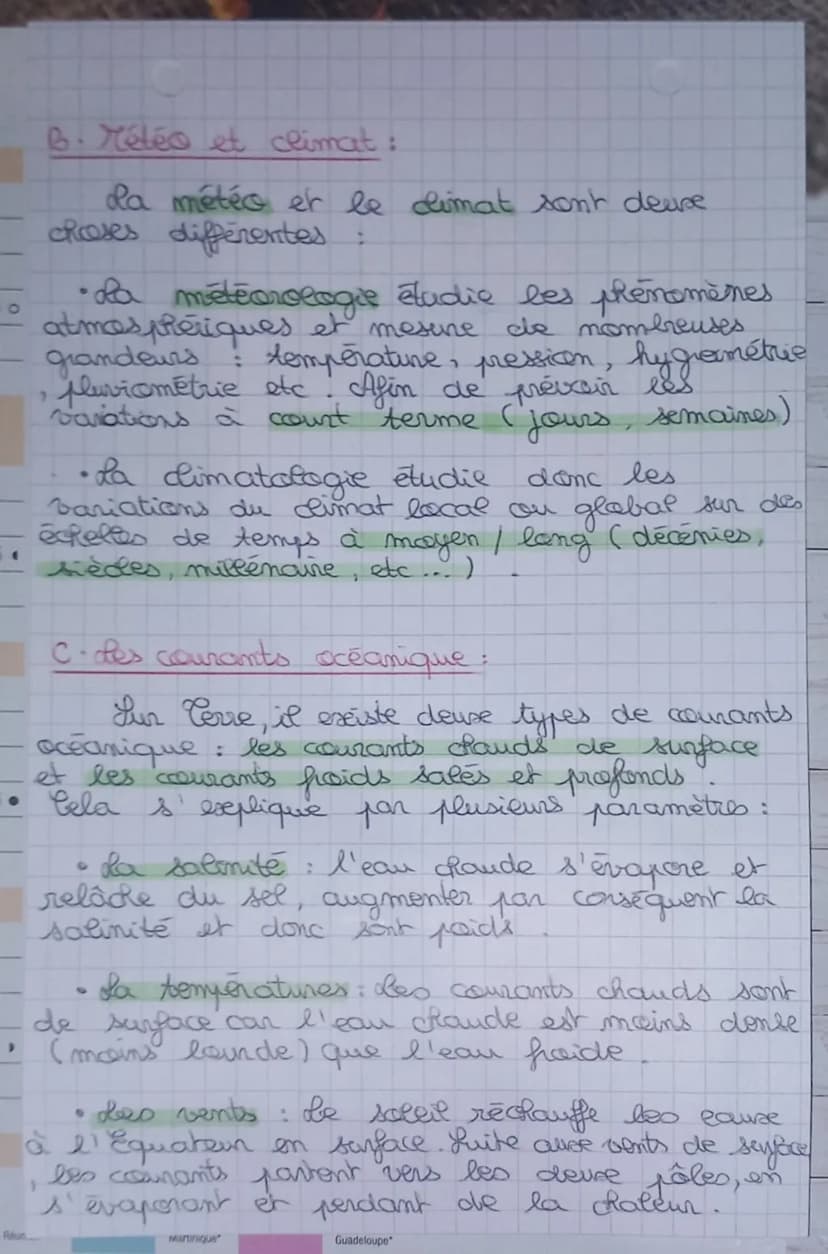 B. Météo et climat :
La météo et le climat sont deux
choses différentes :
• La météorologie étudie les phénomènes
atmosphériques et mesure de nombreuses
grandeurs : température, pression, hygrométrie
, pluviométrie etc. Afin de prévoir les
variations à court terme (jours, semaines)
• La climatologie étudie donc les
variations du climat local ou global sur des
échelles de temps à moyen / long (décénies,
siècles, millénaire, etc...).
C. Les courants océanique :
Sur Terre, il existe deux types de courants
océanique : les courants chauds de surface
et les courants froids salés et profonds.
Cela s'explique par plusieurs paramètres :
• La salinité : l'eau chaude s'évapore et
relâche du sel, augmenter par conséquent la
salinité et donc sont poids.
• La températures : Les courants chauds sont
de surface car l'eau chaude est moins dense
(moins lourde) que l'eau froide.
• Les vents : Le soleil réchauffe les eaux
à l'Équateur en surface. Suite aux vents de surface
, les courants partent vers les deux pôles, en
s'évaporant et perdant de la chaleur.
Martinique*
Guadeloupe*